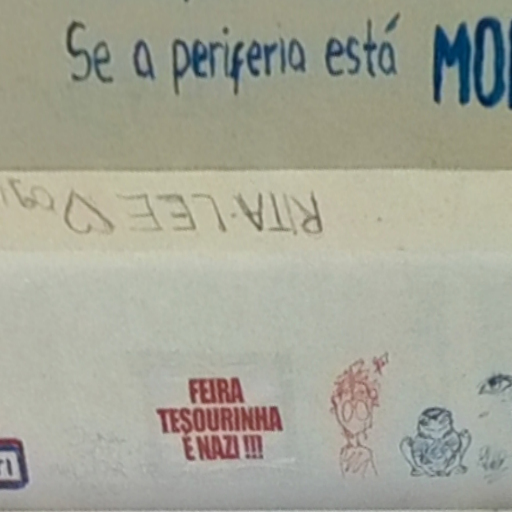 Se a periferia está
RITA LEE
FEIRA
TESOURINHA
É NAZI !!!